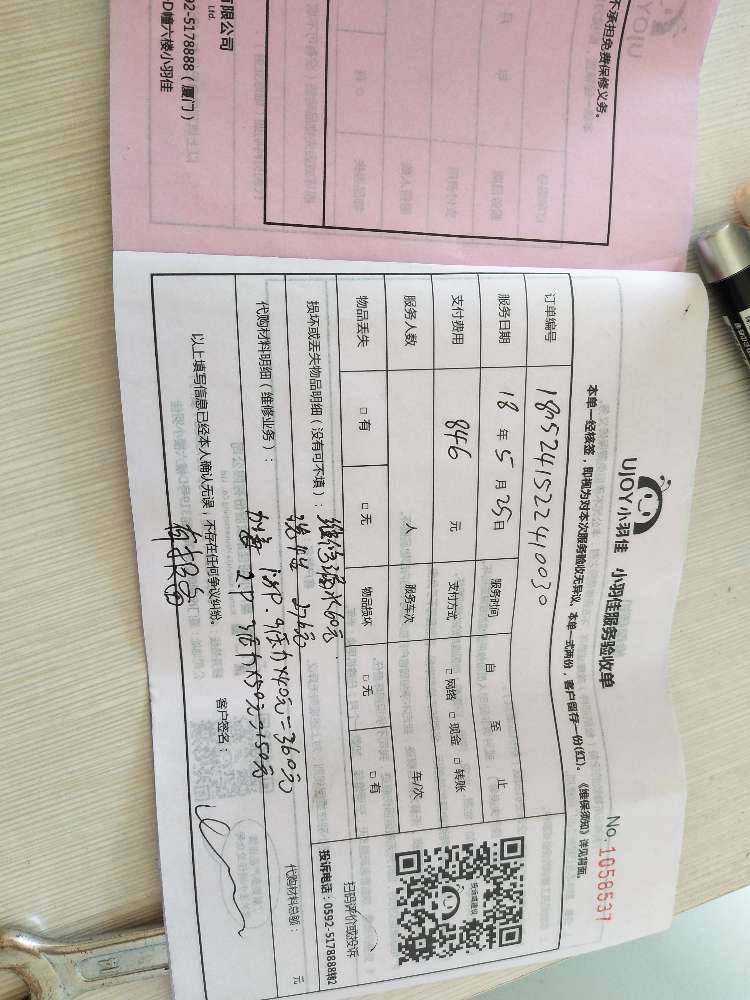 UJOY小羽佳 小羽佳服务验收单
No. 1058537
本单一经核签，即视为对本次服务验收无异议。本单一式两份，客户留存一份(红)。《维保须知》详见背面。
订单编号 1805241522410030
服务日期 18 年 5 月 25 日 服务时间 自 至 止
支付费用 846 元 支付方式 □ 网络 □ 现金 □ 转账
服务人数 人 服务车次 车/次
物品丢失 □ 有 □ 无 物品损坏 □ 无 □ 有
扫码评价或投诉
投诉电话：0592-5178888转2
损坏或丢失物品明细（没有可不填）： 维修漏水60元
洗 276元
代购材料明细（维修业务）： 代购材料总额： 元
加 1.5P. 9 ×40元=360元
2P 3 ×50元=150元
以上填写信息已经本人确认无误，不存在任何争议纠纷。
客户签名：
不承担免费保修义务。
有限公司
Ltd.
92-5178888（厦门）
D幢六楼小羽佳